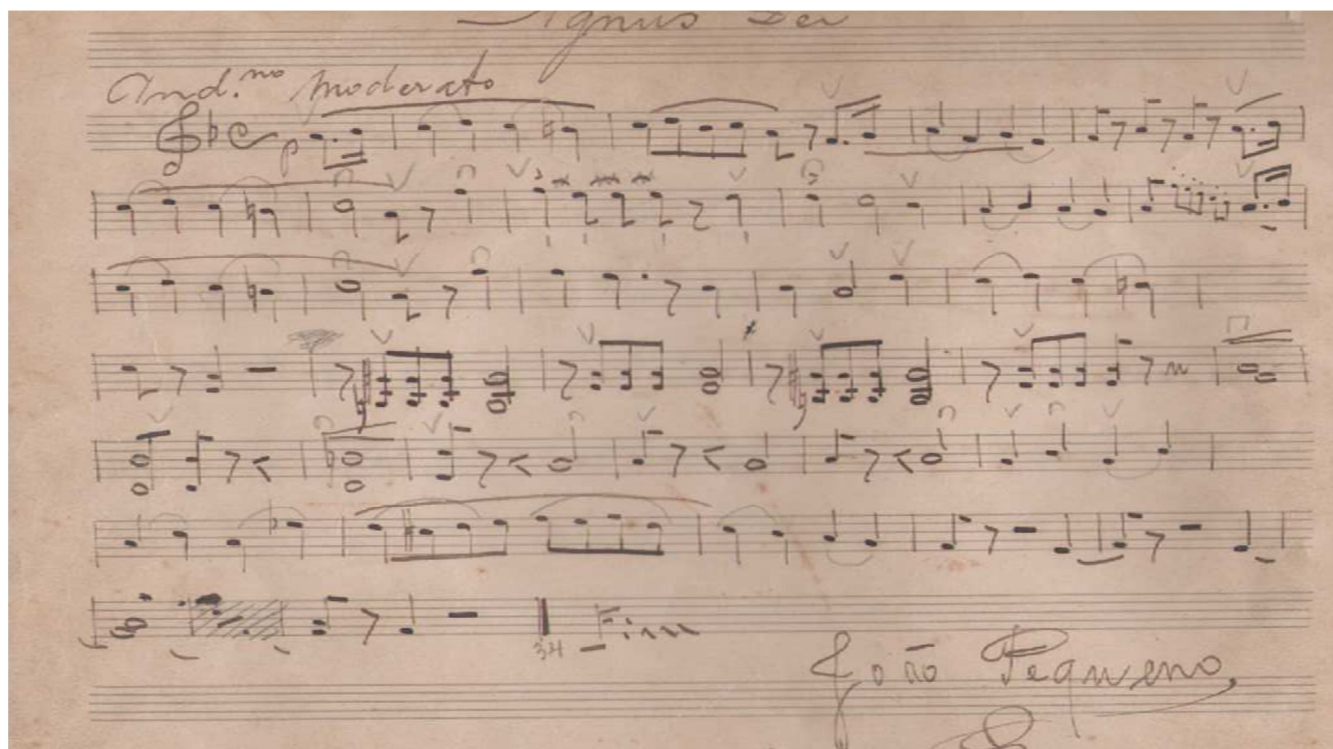 Agnus Dei
And.no moderato
p
34 Fim
João Pequeno